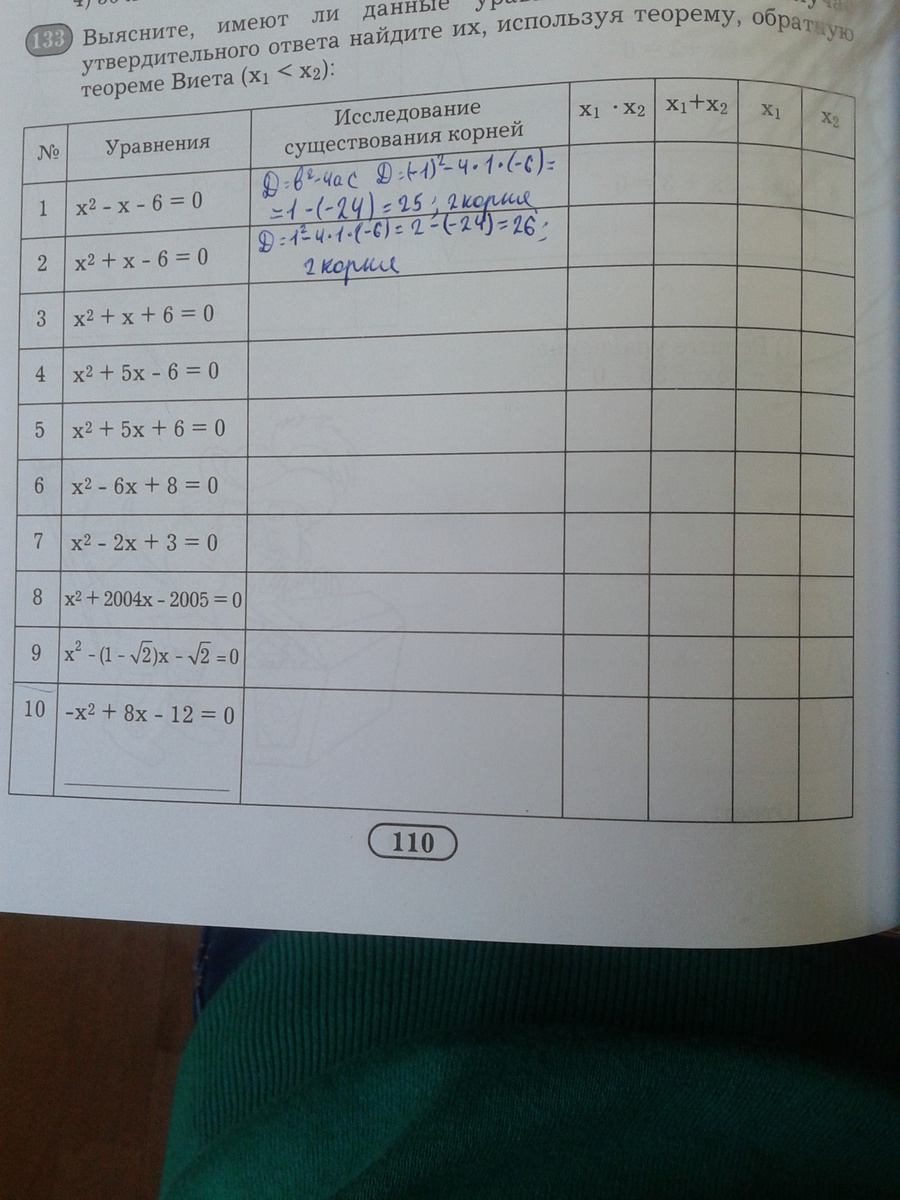 4)
133 Выясните, имеют ли данные
утвердительного ответа найдите их, используя теорему, обратную
теореме Виета (x₁ < x₂):
№ Уравнения Исследование существования корней x₁ · x₂ x₁+x₂ x₁ x₂
1 x² - x - 6 = 0 D=b²-4ac D=(-1)²-4·1·(-6)=
=1-(-24)=25; 2 корня
2 x² + x - 6 = 0 D=1²-4·1·(-6)=2-(-24)=26;
2 корня
3 x² + x + 6 = 0
4 x² + 5x - 6 = 0
5 x² + 5x + 6 = 0
6 x² - 6x + 8 = 0
7 x² - 2x + 3 = 0
8 x² + 2004x - 2005 = 0
9 x² - (1 - √2)x - √2 = 0
10 -x² + 8x - 12 = 0
110